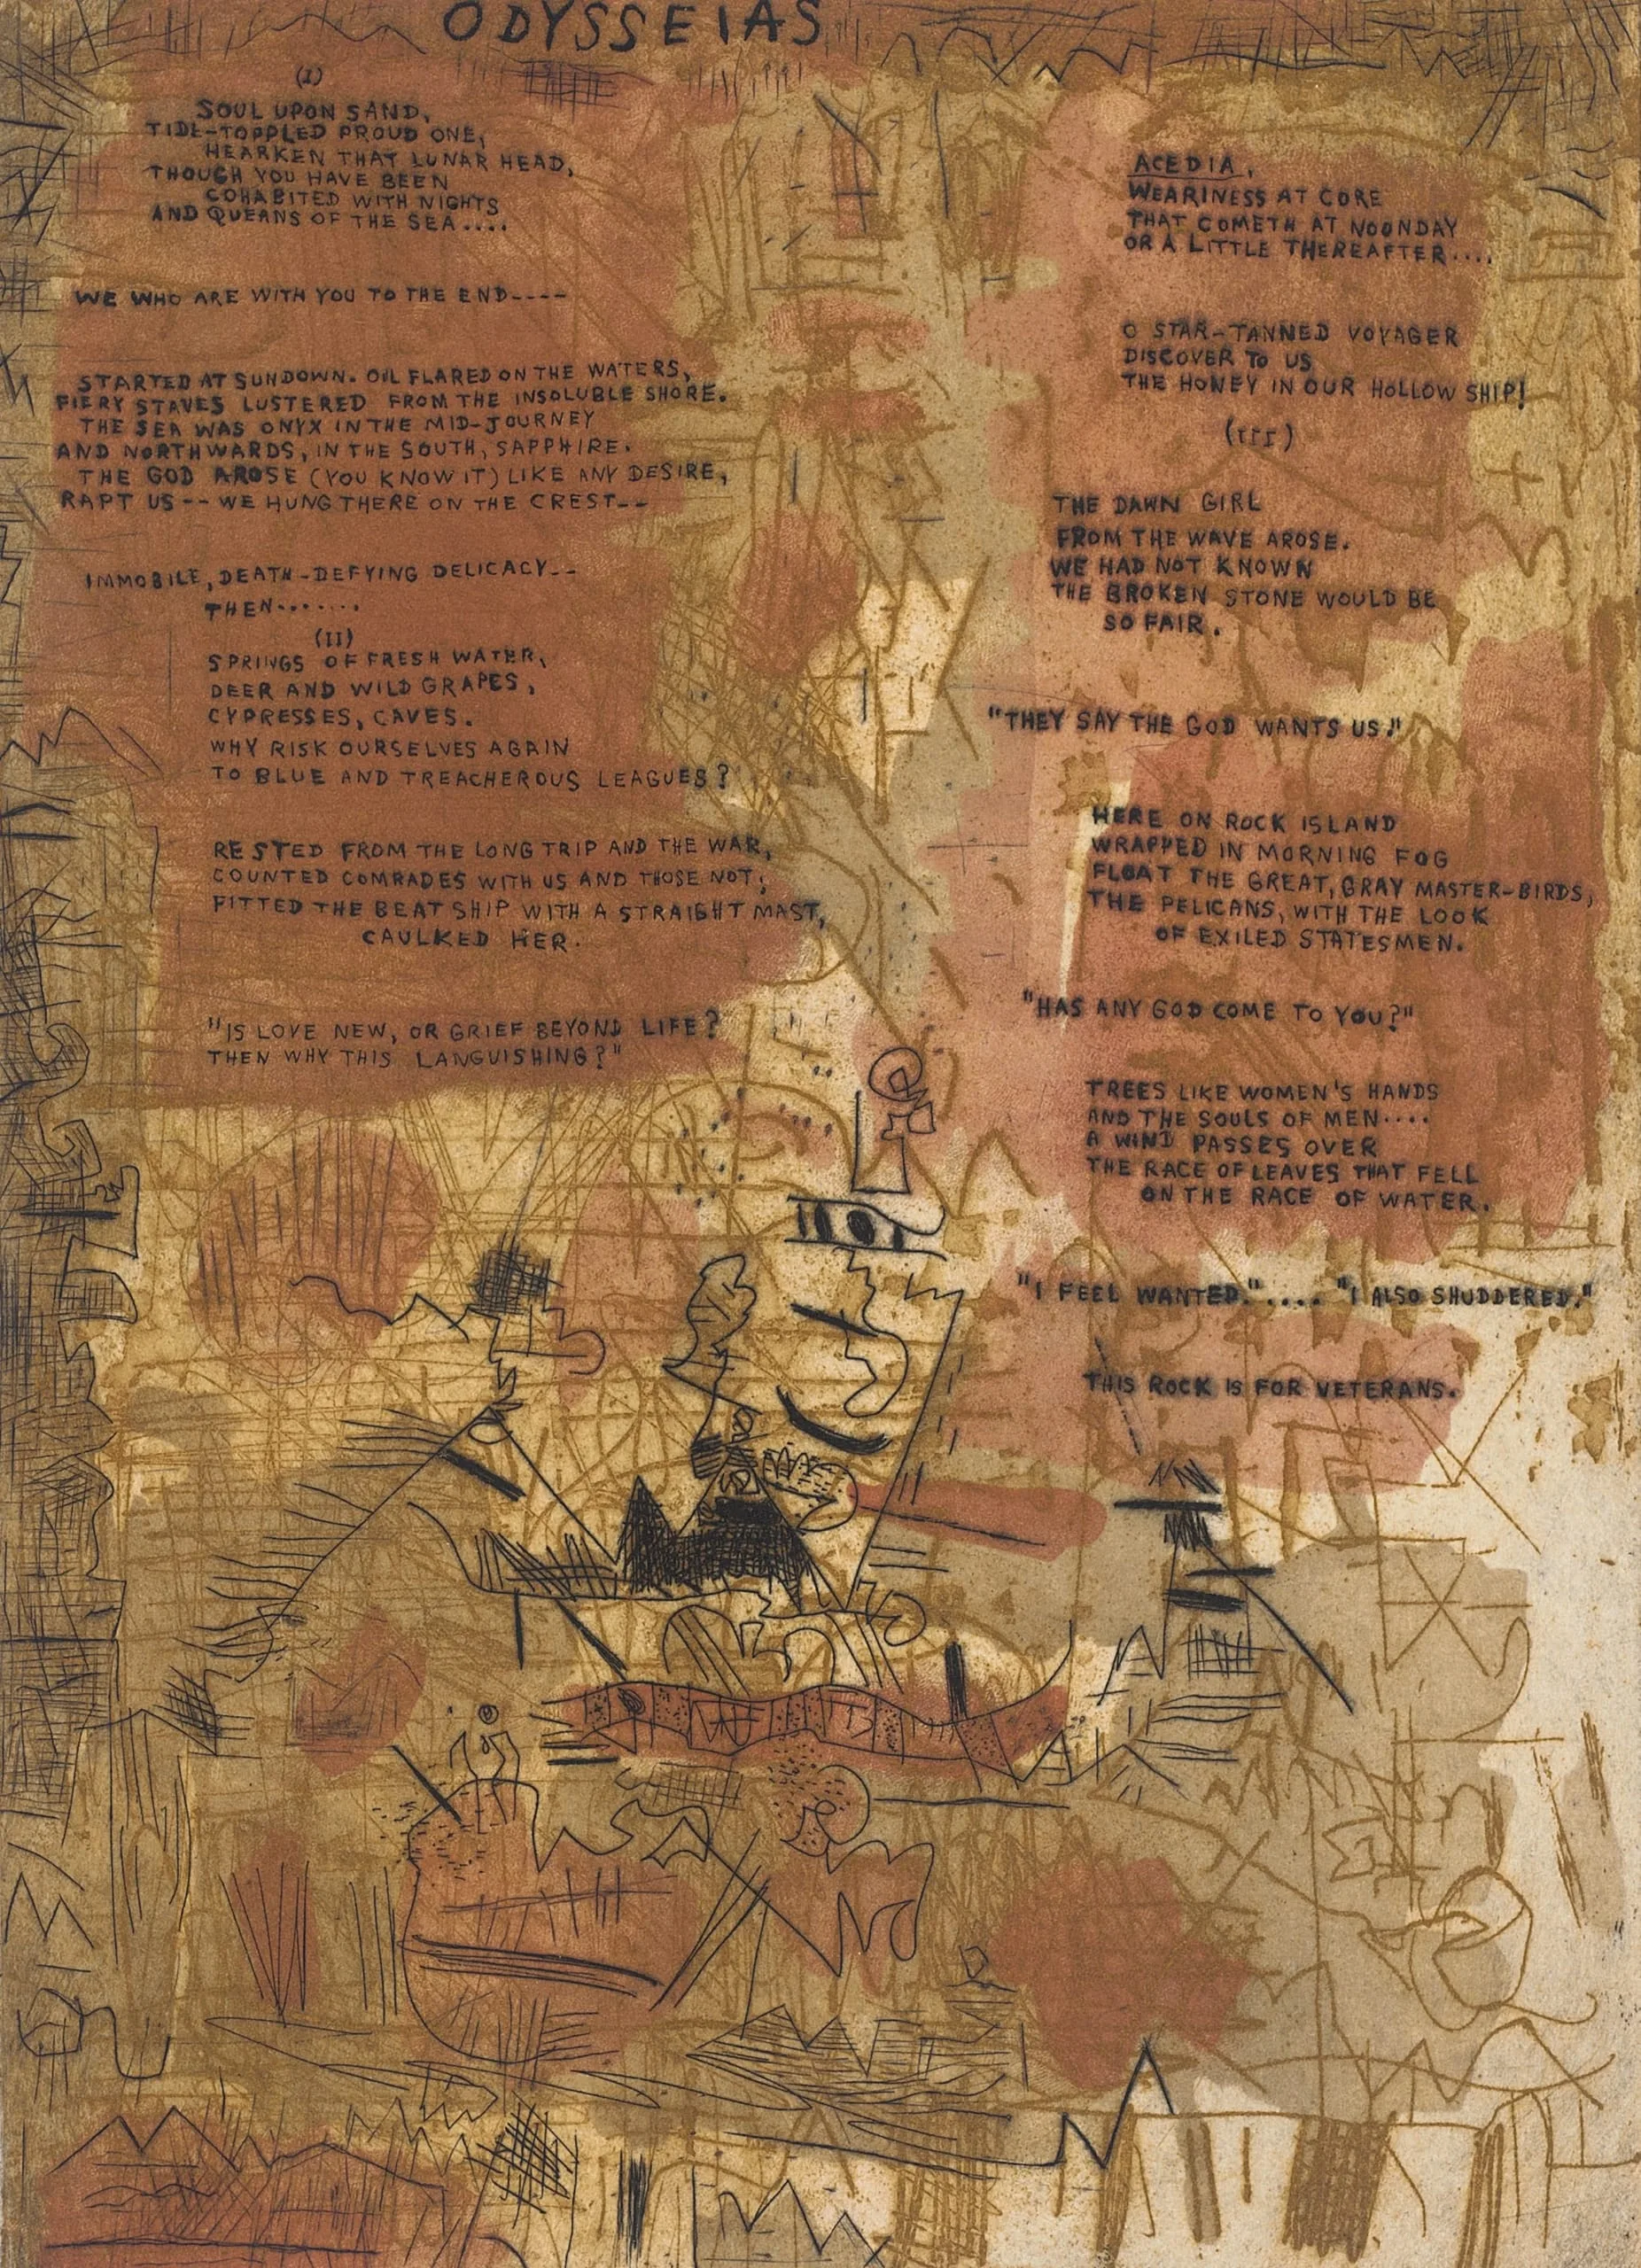 ODYSSEIAS
(I)
SOUL UPON SAND,
TIDE-TOPPLED PROUD ONE,
HEARKEN THAT LUNAR HEAD,
THOUGH YOU HAVE BEEN
COHABITED WITH NIGHTS
AND QUEANS OF THE SEA....
WE WHO ARE WITH YOU TO THE END----
STARTED AT SUNDOWN. OIL FLARED ON THE WATERS,
FIERY STAVES LUSTERED FROM THE INSOLUBLE SHORE.
THE SEA WAS ONYX IN THE MID-JOURNEY
AND NORTHWARDS, IN THE SOUTH, SAPPHIRE.
THE GOD AROSE (YOU KNOW IT) LIKE ANY DESIRE,
RAPT US -- WE HUNG THERE ON THE CREST--
IMMOBILE, DEATH-DEFYING DELICACY--
THEN.......
(II)
SPRINGS OF FRESH WATER,
DEER AND WILD GRAPES,
CYPRESSES, CAVES.
WHY RISK OURSELVES AGAIN
TO BLUE AND TREACHEROUS LEAGUES?
RESTED FROM THE LONG TRIP AND THE WAR,
COUNTED COMRADES WITH US AND THOSE NOT;
FITTED THE BEAT SHIP WITH A STRAIGHT MAST,
CAULKED HER.
"IS LOVE NEW, OR GRIEF BEYOND LIFE?
THEN WHY THIS LANGUISHING?"
ACEDIA,
WEARINESS AT CORE
THAT COMETH AT NOONDAY
OR A LITTLE THEREAFTER....
O STAR-TANNED VOYAGER
DISCOVER TO US
THE HONEY IN OUR HOLLOW SHIP!
(III)
THE DAWN GIRL
FROM THE WAVE AROSE.
WE HAD NOT KNOWN
THE BROKEN STONE WOULD BE
SO FAIR.
"THEY SAY THE GOD WANTS US."
HERE ON ROCK ISLAND
WRAPPED IN MORNING FOG
FLOAT THE GREAT, GRAY MASTER-BIRDS,
THE PELICANS, WITH THE LOOK
OF EXILED STATESMEN.
"HAS ANY GOD COME TO YOU?"
TREES LIKE WOMEN'S HANDS
AND THE SOULS OF MEN....
A WIND PASSES OVER
THE RACE OF LEAVES THAT FELL
ON THE RACE OF WATER.
"I FEEL WANTED.".... "I ALSO SHUDDERED."
THIS ROCK IS FOR VETERANS.